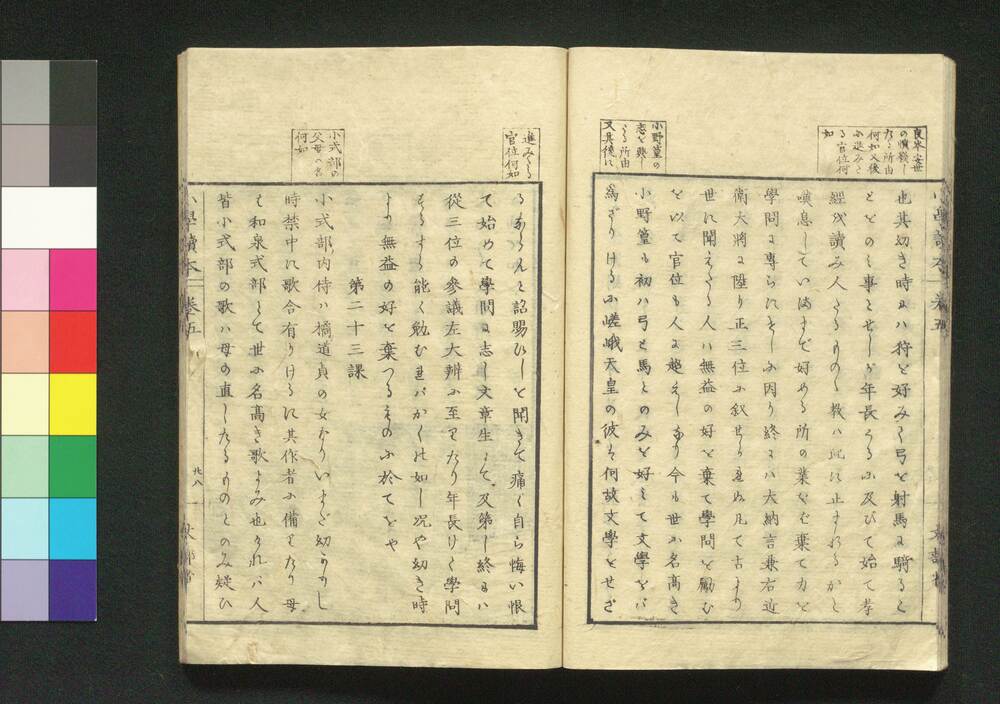 良岑安世
の憤發し
たる所由
何如又後
に進みた
る官位何
如
也其幼き時にハ狩を好みて弓を射馬に騎るこ
とをのミ事とせしが年長するに及びて始て孝
經を讀み人たるものゝ教ハ此に止まれるかと
嘆息していまゝで好める所の業をば棄て力を
學問に專らにせしに因り終にハ大納言兼右近
衛大將に陞り正三位に叙せり是ぬ凡て古より
世に聞えたる人ハ無益の好を棄て學問を勵む
を以て官位も人に越えしなり今も世に名高き
小野篁の
志を興し
たる所由
又其後に
小野篁も初ハ弓と馬とのみを好ミて文學をバ
爲ざりけるに嵯峨天皇の彼を何故文學をせざ
進みたる
官位何如
るならんと詔賜ひしを聞きて痛く自ら悔い恨
て始めて學問に志し文章生にて及第し終にハ
從三位の參議左大辨に至りたり年長けて學問
するすら能く勉むればかくの如し况や幼き時
より無益の好を棄つるものに於てをや
第二十三課
小式部の
父母の名
何如
小式部内侍ハ橘道貞の女なりいまだ幼かりし
時禁中に歌合有りけるに其作者に備りたり母
は和泉式部とて世に名高き歌よみ也ければ人
皆小式部の歌ハ母の直したるものとのみ疑ひ
小學讀本
卷五
廿八
文部省